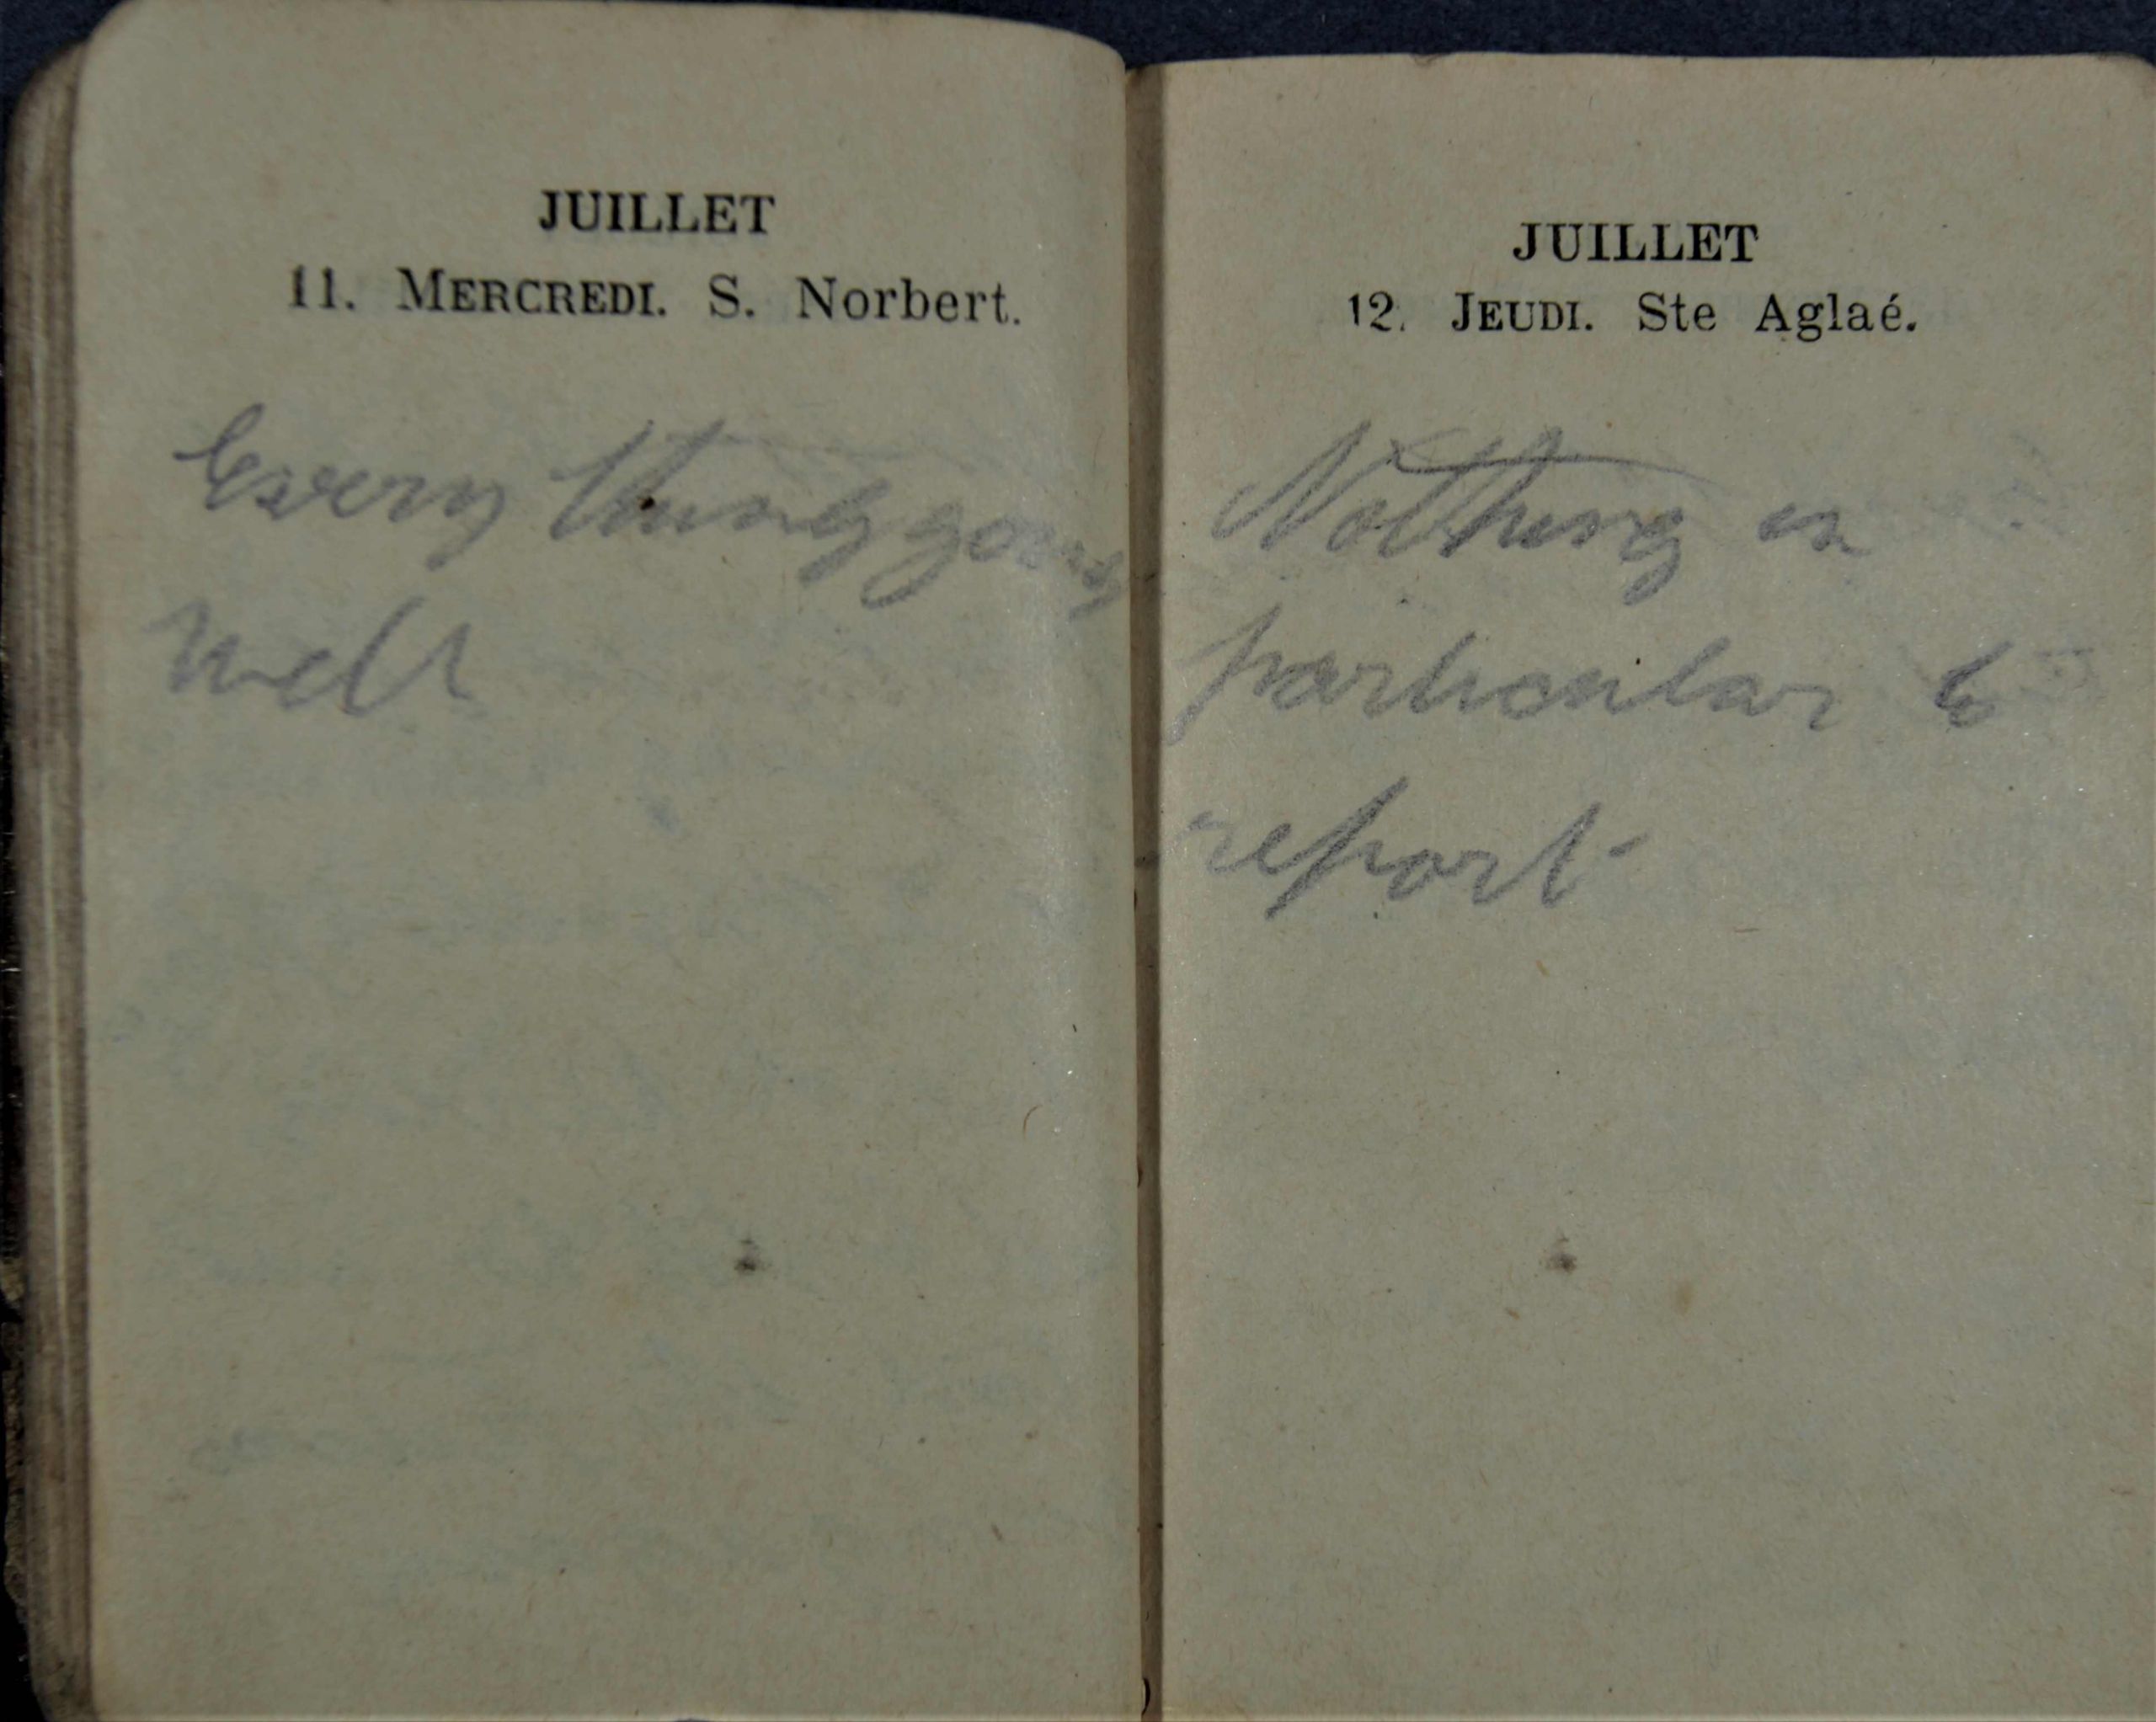 JUILLET
11. MERCREDI. S. Norbert.
Every thing going
well
JUILLET
12. JEUDI. Ste Aglaé.
Nothing in
particular to
report